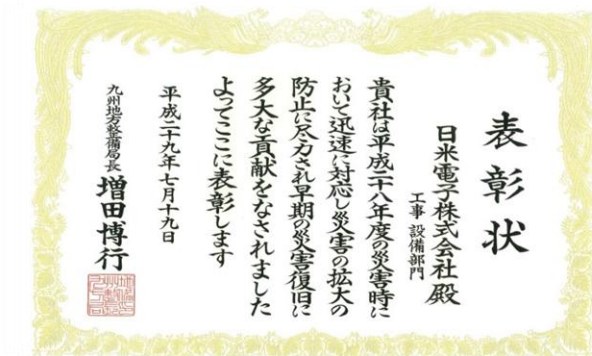 表彰状
日米電子株式会社 殿
工事 設備部門
貴社は平成二八年度の災害時に
おいて迅速に対応し災害の拡大の
防止に尽力され早期の災害復旧に
多大な貢献をなされました
よってここに表彰します
平成二九年七月十九日
九州地方整備局長 増田博行